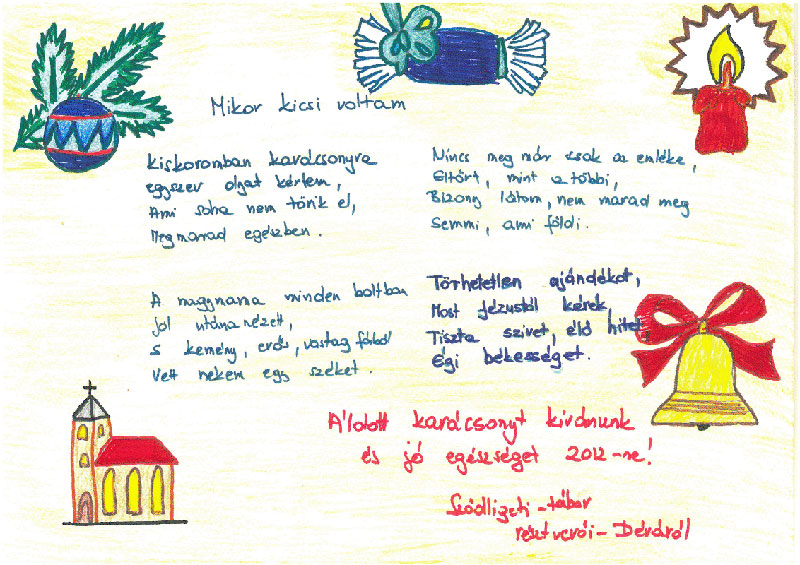 Mikor kicsi voltam
Kiskoromban karácsonyra
egyszer olyat kértem,
Ami soha nem törik el,
Megmarrad egészben.
A nagymama minden boltban
jól utána nézett,
S kemény, erős, vastag fából
Vett nekem egy széket.
Nincs meg már csak az emléke,
Eltört, mint a többi,
Bizony látom, nem marad meg
Semmi, ami földi.
Törhetetlen ajándékot,
Most Jézustól kérek,
Tiszta szivet, élő hitet,
Égi békességet.
Áldott karácsonyt kivánunk
és jó egészséget 2012-re!
Sződligeti-tábor
résztvevői-